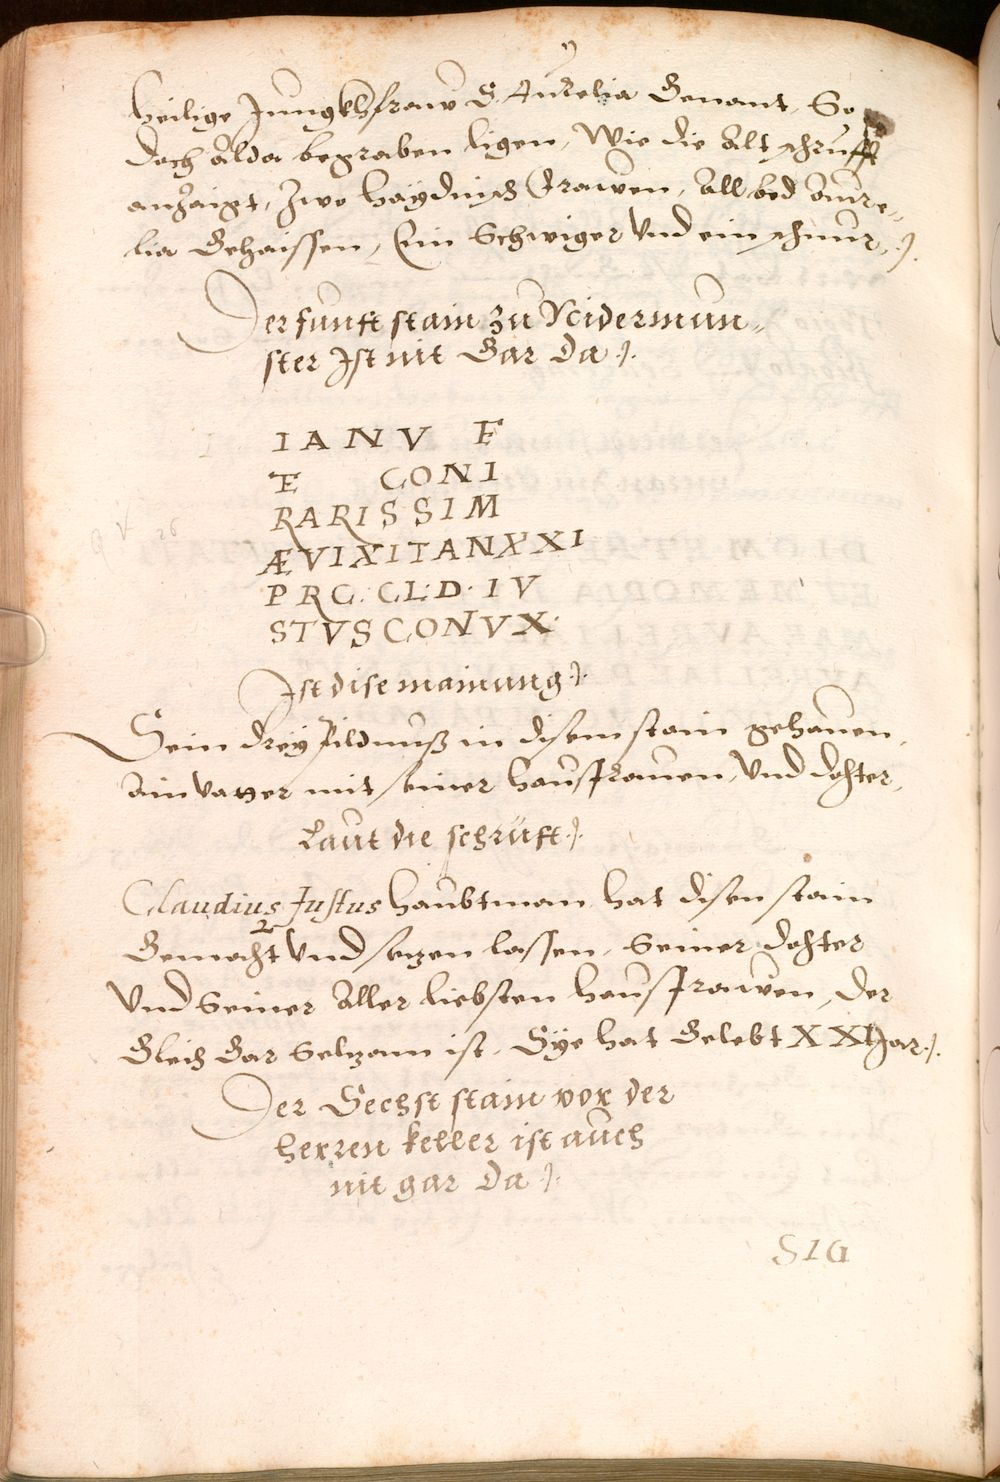 heilige Jungkhfraw S. Aurelia Genant, So
doch alda begraben ligen, Wie die Alt schrufft
anzaigt, Zwo haydnisch frawen, All bed Aure„
lia Gehaissen, Ein Schwiger Vnd ein schnur./.
Der funft stain zu Nidermun„
ster Jst nit Gar da ./.
IANV F
E CONI
RARISSIM
ÆVIXITANXXI
PRC. CL. D. IV
STVS CONVX.
Jst dise mainung ./.
Sein drey Pildnuß in disem stain gehauen,
ain vatter mit seiner hausfrauen, Vnd dohter,
Laut die schruft ./.
Claudius Justus haubtman hat disen stain
Gemacht Vnd setzen lassen, Seiner dohter
Vnd Seiner Aller liebsten hausfrawen, der
Gleich Gar Seltzam ist, Sye hat Gelebt XXI Jar ./.
Der Sechst stain vor der
herren keller ist auch
nit gar da ./.
SIG